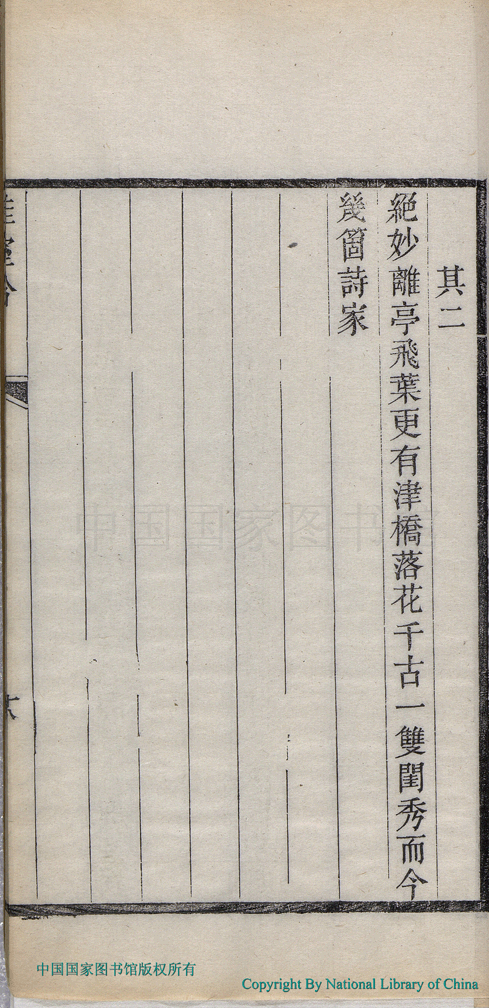 其二
絕妙離亭飛葉更有津橋落花千古一雙閨秀而今
幾箇詩家
中国国家图书馆
中国国家图书馆版权所有
Copyright By National Library of China